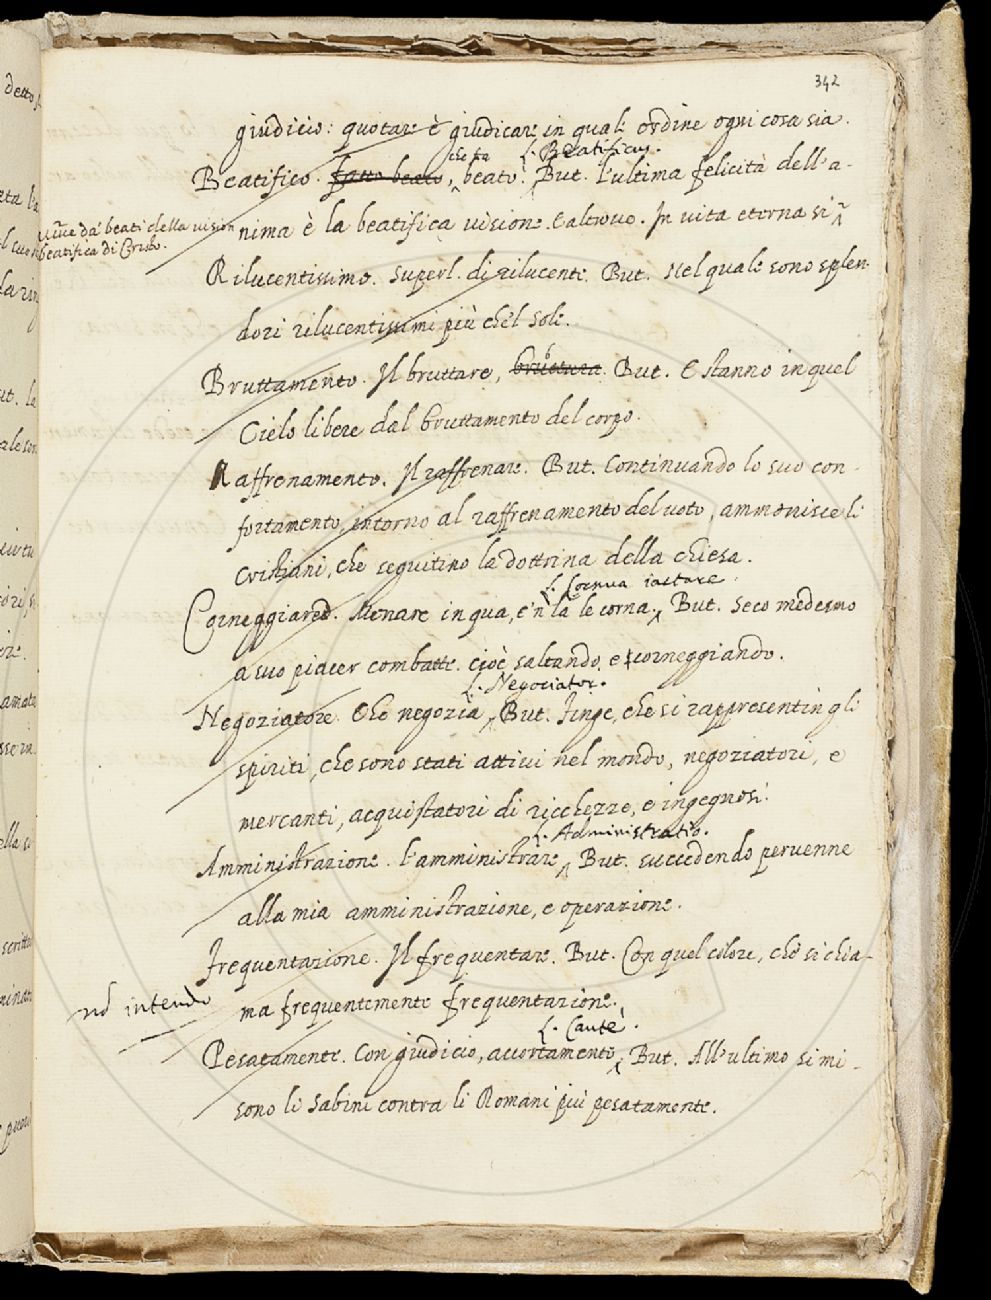 342
giudicio: quotare è giudicare in qual ordine ogni cosa sia.
che fa L. Beatificus.
Beatifico. fatto beato, beato. But. L'ultima felicità dell'a-
nima è la beatifica visione. E altrove. In vita eterna si
vive da' beati della vision
beatifica di Cristo.
Rilucentissimo. Superl. di rilucente. But. Nel quale sono splen-
dori rilucentissimi più che 'l Sole.
Bruttamento. Il bruttare, bruttura. But. E stanno in quel
Cielo libere dal bruttamento del corpo.
Raffrenamento. Il raffrenare. But. Continuando lo suo con-
fortamento intorno al raffrenamento del voto, ammonisce li
Cristiani, che seguitino la dottrina della chiesa.
L. Cornua iactare.
Corneggiare. Menare in qua, e 'n là le corna. But. Seco medesmo
a suo piacer combatte. cioè saltando, e corneggiando.
L. Negociator.
Negoziatore. Che negozia. But. Finge, che si rappresentin gli
spiriti, che sono stati attivi nel mondo, negoziatori, e
mercanti, acquistatori di ricchezze, e ingegnosi.
L. Administratio.
Amministrazione. L'amministrare. But. Succedendo pervenne
alla mia amministrazione, e operazione.
Frequentazione. Il frequentare. But. Con quel colore, che si chia-
ma frequentemente frequentazione.
nõ intendo
L. Cautè.
Pesatamente. Con giudicio, accortamente. But. All'ultimo si mi-
sono li Sabini contra li Romani più pesatamente.